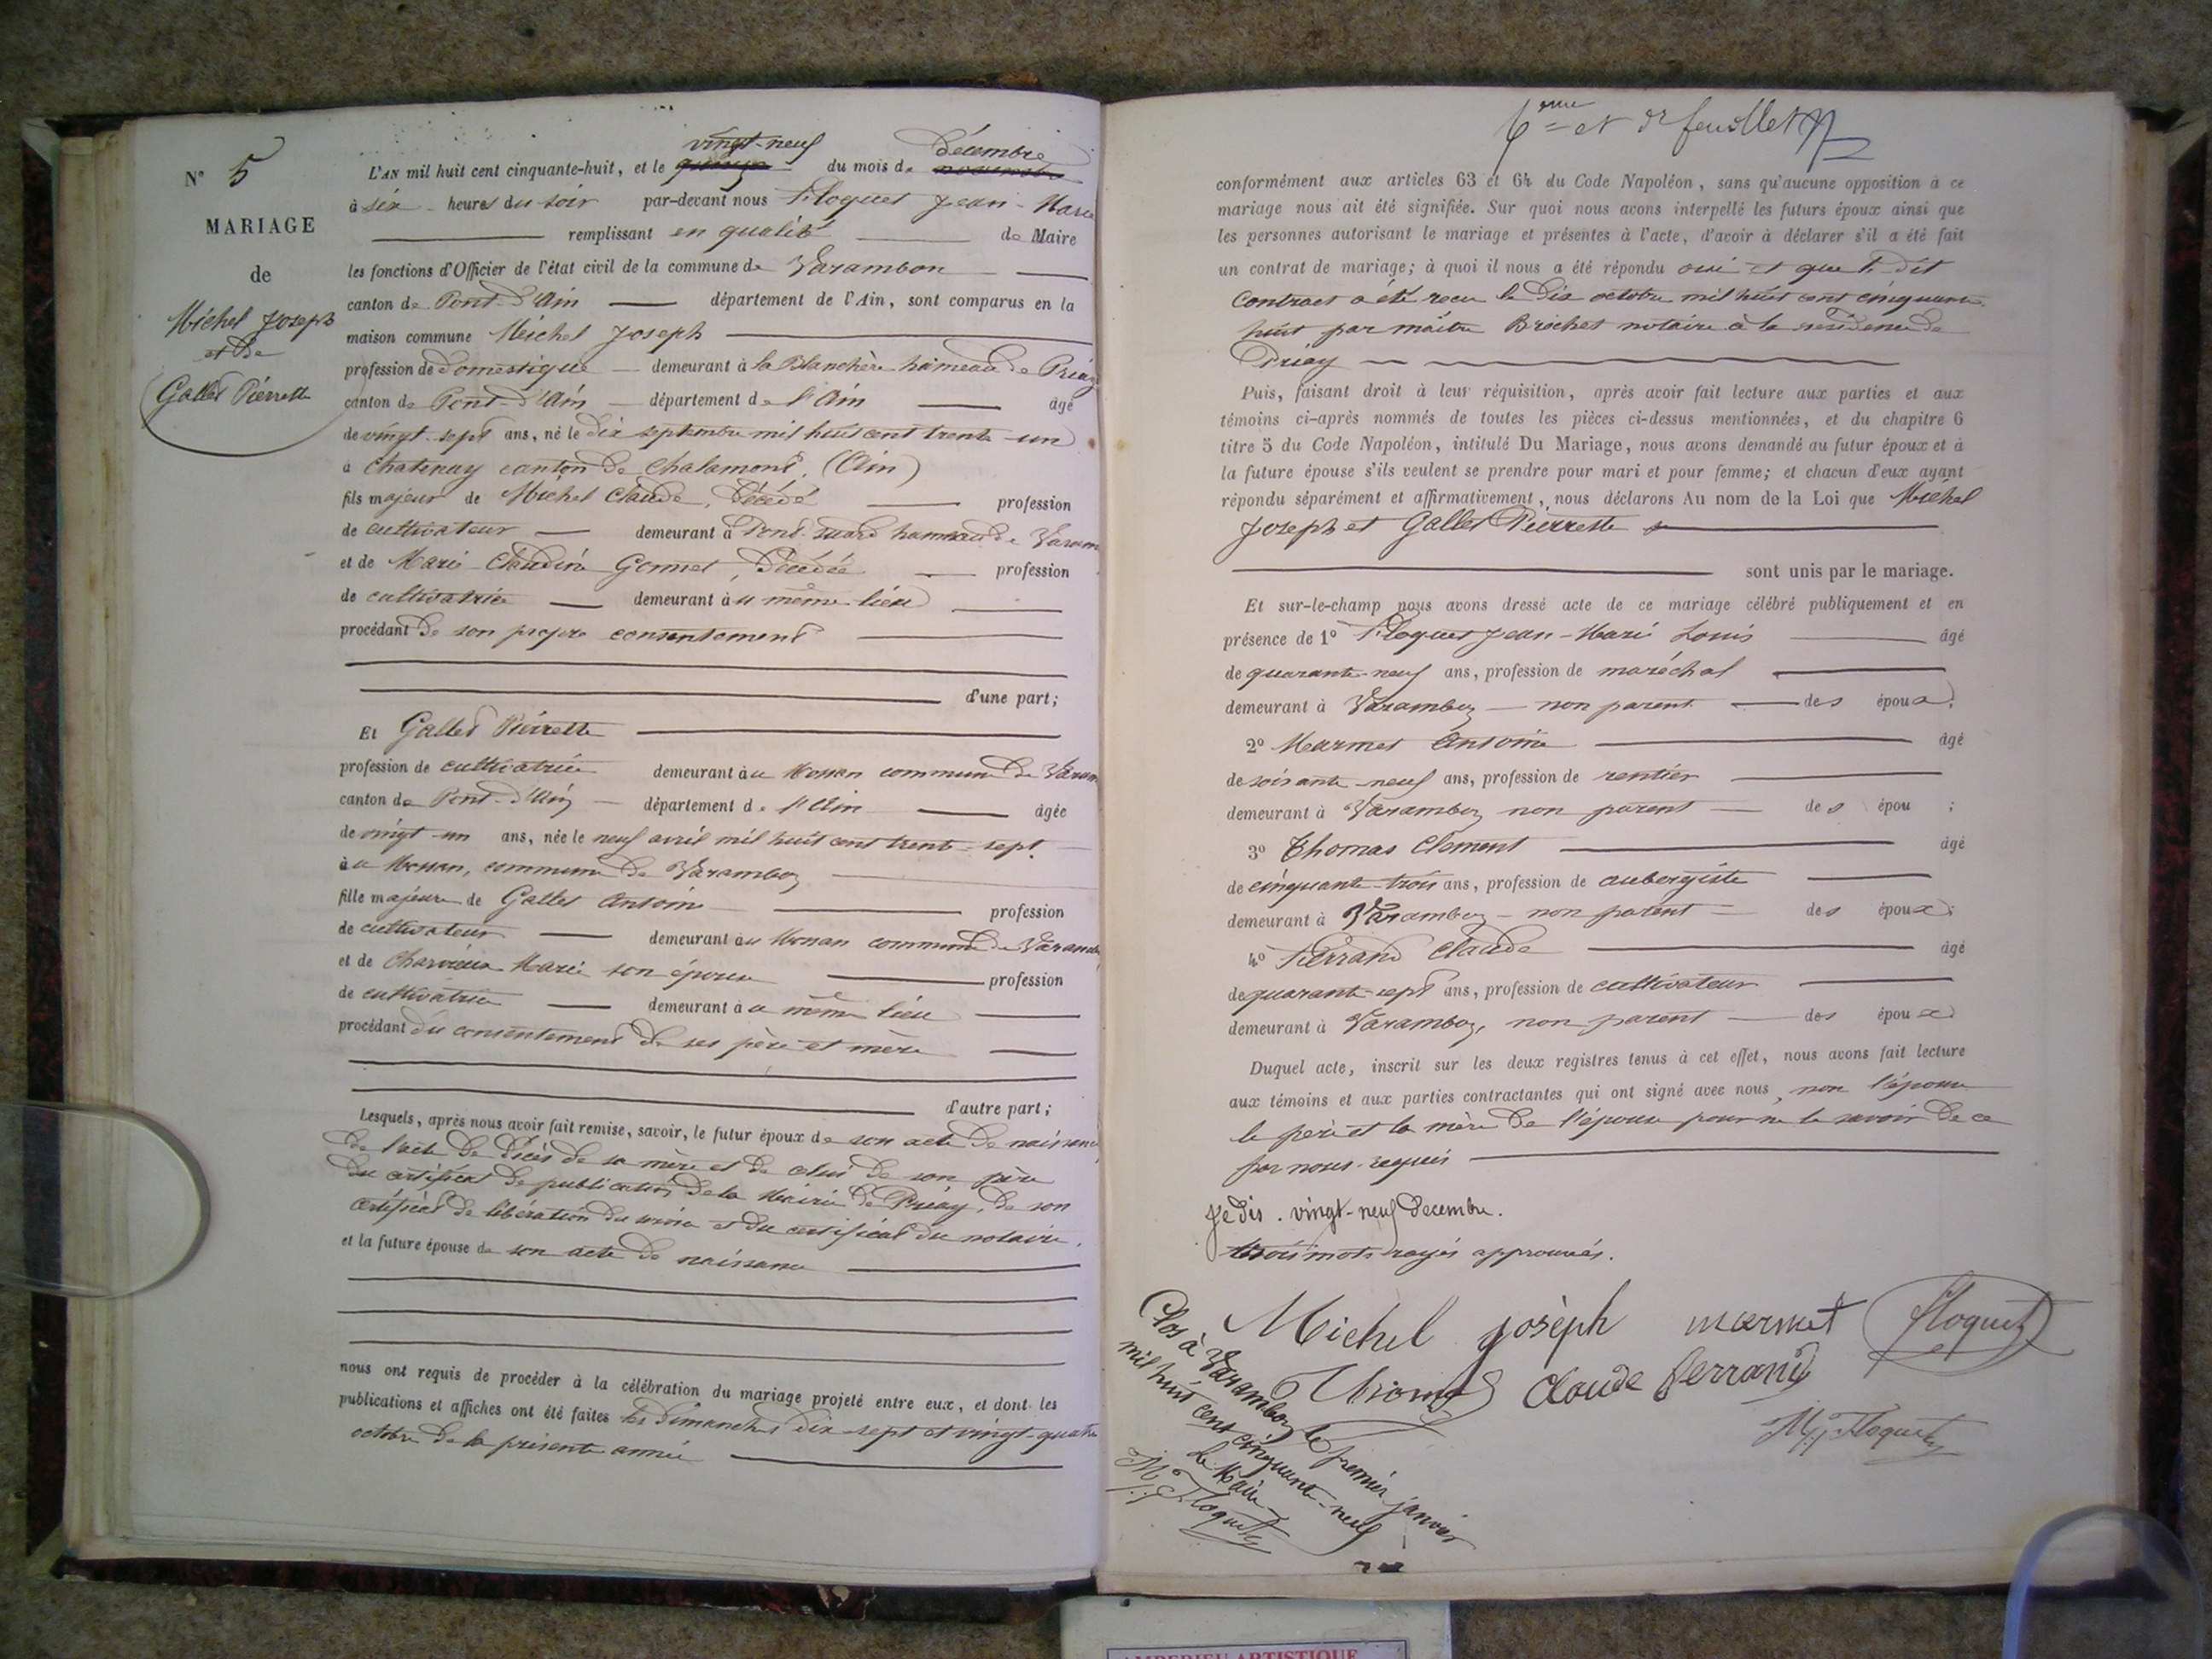 N° 5
MARIAGE
de
Michel Joseph
et de
Gallet Pierrette
vingt-neuf décembre
L'AN mil huit cent cinquante-huit, et le quinze du mois de novembre
à six heures du soir par-devant nous Floquet Jean-Marie
remplissant en qualité de Maire
les fonctions d'Officier de l'état civil de la commune de Varambon
canton de Pont-d'Ain département de l'Ain, sont comparus en la
maison commune Michel Joseph
profession de domestique demeurant à la Blanchère hameau de Priay
canton de Pont-d'Ain département de l'Ain âgé
de vingt-sept ans, né le dix septembre mil huit cent trente-un
à Chatenay canton de Chalamont, (Ain)
fils majeur de Michel Claude, décédé profession
de cultivateur demeurant à Pont-Suard hameau de Varam
et de Marie Claudine Gonnet, décédée profession
de cultivatrice demeurant au même lieu
procédant de son propre consentement
d'une part;
Et Gallet Pierrette
profession de cultivatrice demeurant au commune de Varam
canton de Pont-d'Ain département de l'Ain âgée
de vingt-un ans, née le neuf avril mil huit cent trente-sept
au commune de Varambon
fille majeure de Gallet Antoine profession
de cultivateur demeurant au commune de Varamb
et de Charvieux Marie son épouse profession
de cultivatrice demeurant au même lieu
procédant du consentement de ses père et mère
d'autre part;
Lesquels, après nous avoir fait remise, savoir, le futur époux de son acte de naissance,
de l'acte de décès de sa mère et de celui de son père
du certificat de publication de la Mairie de Priay, de son
certificat de libération du service et du certificat du notaire,
et la future épouse de son acte de naissance
nous ont requis de procéder à la célébration du mariage projeté entre eux, et dont les
publications et affiches ont été faites les dimanches dix-sept et vingt-quatre
octobre de la présente année
6eme et dr feuillet
conformément aux articles 63 et 64 du Code Napoléon, sans qu'aucune opposition à ce
mariage nous ait été signifiée. Sur quoi nous avons interpellé les futurs époux ainsi que
les personnes autorisant le mariage et présentes à l'acte, d'avoir à déclarer s'il a été fait
un contrat de mariage; à quoi il nous a été répondu oui et que le dit
contract a été reçu le dix octobre mil huit cent cinquante-
huit par maître Brochet notaire à la résidence de
Priay
Puis, faisant droit à leur réquisition, après avoir fait lecture aux parties et aux
témoins ci-après nommés de toutes les pièces ci-dessus mentionnées, et du chapitre 6
titre 5 du Code Napoléon, intitulé Du Mariage, nous avons demandé au futur époux et à
la future épouse s'ils veulent se prendre pour mari et pour femme; et chacun d'eux ayant
répondu séparément et affirmativement, nous déclarons Au nom de la Loi que Michel
Joseph et Gallet Pierrette
sont unis par le mariage.
Et sur-le-champ nous avons dressé acte de ce mariage célébré publiquement et en
présence de 1° Floquet Jean-Marie Louis âgé
de quarante-neuf ans, profession de maréchal
demeurant à Varambon non parent des époux;
2° Marmet Antoine âgé
de soixante-neuf ans, profession de rentier
demeurant à Varambon non parent des épou ;
3° Thomas Clément âgé
de cinquante-trois ans, profession de aubergiste
demeurant à Varambon non parent des époux;
4° Ferrand Claude âgé
de quarante-sept ans, profession de cultivateur
demeurant à Varambon, non parent des époux
Duquel acte, inscrit sur les deux registres tenus à cet effet, nous avons fait lecture
aux témoins et aux parties contractantes qui ont signé avec nous, non l'épouse
le père et la mère de l'épouse pour ne le savoir de ce
par nous requis
Je dis . vingt-neuf decembre.
trois mots rayés approuvés.
Michel joseph marmet Floquet
Thomas Claude Ferrand
M. Floquet
Clos à Varambon le premier janvier
mil huit cent cinquante-neuf
Le Maire
M. Floquet
AMBERIEU ARTISTIQUE